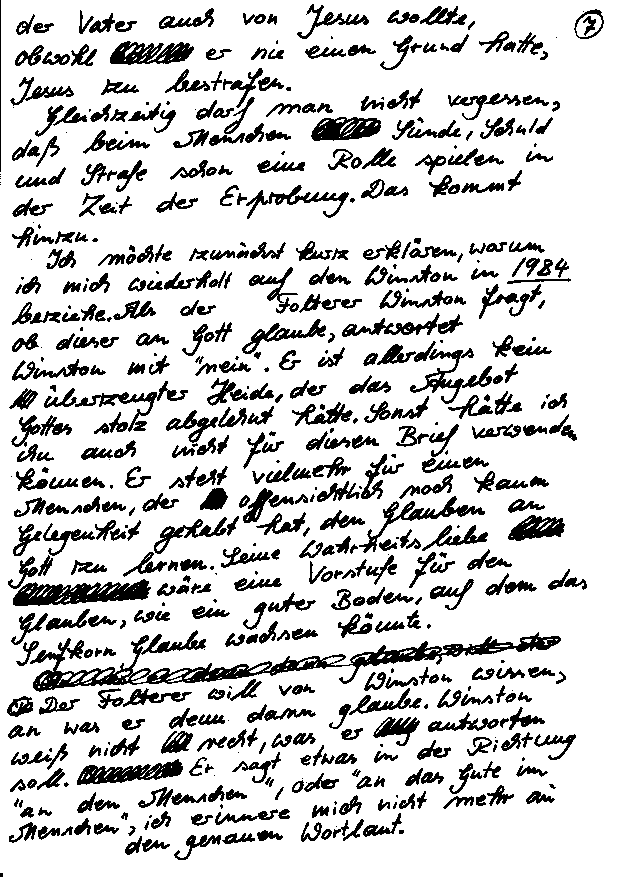 der Vater auch von Jesus wollte,
7
obwohl er nie einen Grund hatte,
Jesus zu bestrafen.
Gleichzeitig darf man nicht vergessen,
daß beim Menschen Sünde, Schuld
und Strafe schon eine Rolle spielen in
der Zeit der Erprobung. Das kommt
hinzu.
Ich möchte zunächst kurz erklären, warum
ich mich wiederholt auf den Winston in 1984
beziehe. Als der Folterer Winston fragt,
ob dieser an Gott glaube, antwortet
Winston mit "nein". Er ist allerdings kein
überzeugter Heide, der das Angebot
Gottes stolz abgelehnt hätte. Sonst hätte ich
ihn auch nicht für diesen Brief verwenden
können. Er steht vielmehr für einen
Menschen, der offensichtlich noch kaum
Gelegenheit gehabt hat, den Glauben an
Gott zu lernen. Seine Wahrheitsliebe
wäre eine Vorstufe für den
Glauben, wie ein guter Boden, auf dem das
Senfkorn Glaube wachsen könnte.
Der Folterer will von Winston wissen,
an was er denn dann glaube. Winston
weiß nicht recht, was er antworten
soll. Er sagt etwas in der Richtung
"an den Menschen", oder "an das Gute im
Menschen", ich erinnere mich nicht mehr an
den genauen Wortlaut.